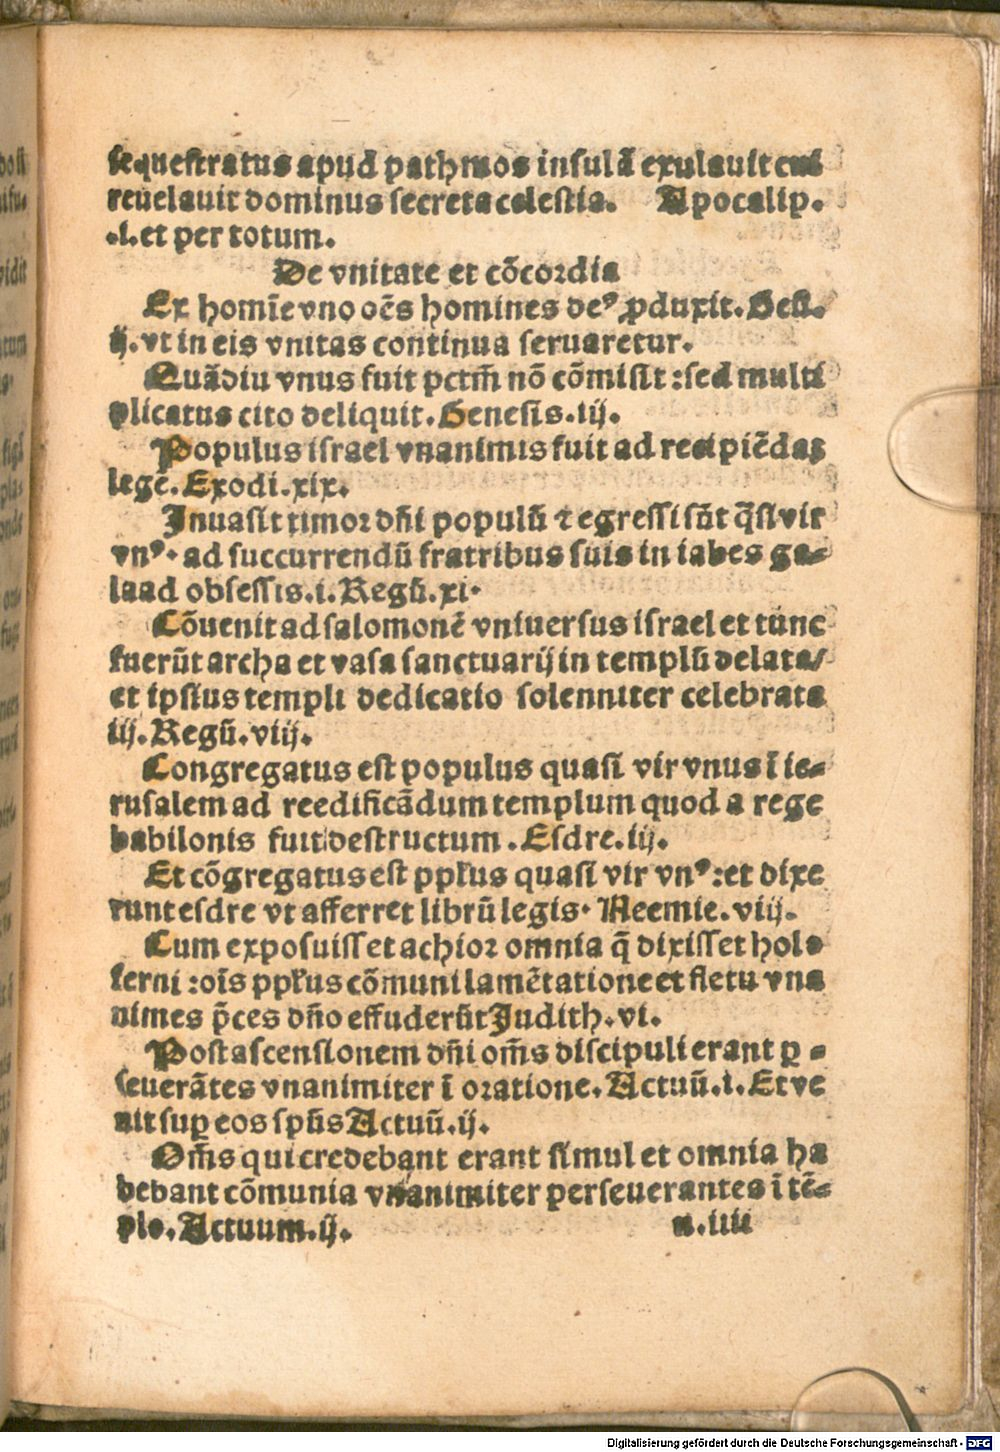 sequestratus apud pathmos insulā exulavit cui
revelavit dominus secreta celestia. Apocalip.
.i. et per totum.
De vnitate et cōcordia
Ex homīe vno oēs homines deꝰ ꝓduxit. Geñ.
ij. vt in eis vnitas continua seruaretur.
Quādiu vnus fuit pctm̄ nō cōmisit : sed multi
plicatus cito deliquit. Genesis. iij.
Populus israel vnanimis fuit ad recipiēdaꝫ
legē. Exodi. xix.
Inuasit timor dñi populū ⁊ egressi sūt q̄si vir
vnꝰ. ad succurrendū fratribus suis in iabes ga⸗
laad obsessis. i. Regū. xi.
Cōuenit ad salomonē vniuersus israel et tunc
fuerūt archa et vasa sanctuarij in templū delata/
et ipsius templi dedicatio solenniter celebrata
iij. Regū. viij.
Congregatus est populus quasi vir vnus ī ie⸗
rusalem ad reedificādum templum quod a rege
babilonis fuit destructum . Esdre. iij.
Et cōgregatus est pplus quasi vir vnꝰ : et dixe
runt esdre vt afferret librū legis. Neemie. viij.
Cum exposuisset achior omnia q̄ dixisset holo
ferni : oīs pplus cōmuni lamētatione et fletu vna
nimes p̄ces dño effuderūt Judith. vi.
Post ascensionem dñi om̄s discipuli erant ꝑ ⸗
seuerātes vnanimiter ī oratione. Actuū. i. Et ve
nit suꝑ eos spūs Actuū. ij.
Om̄s qui credebant erant simul et omnia ha
bebant cōmunia vnanimiter perseuerantes ī tē⸗
plo. Actuum. ij.
n.iiii
Digitalisierung gefördert durch die Deutsche Forschungsgemeinschaft - DFG